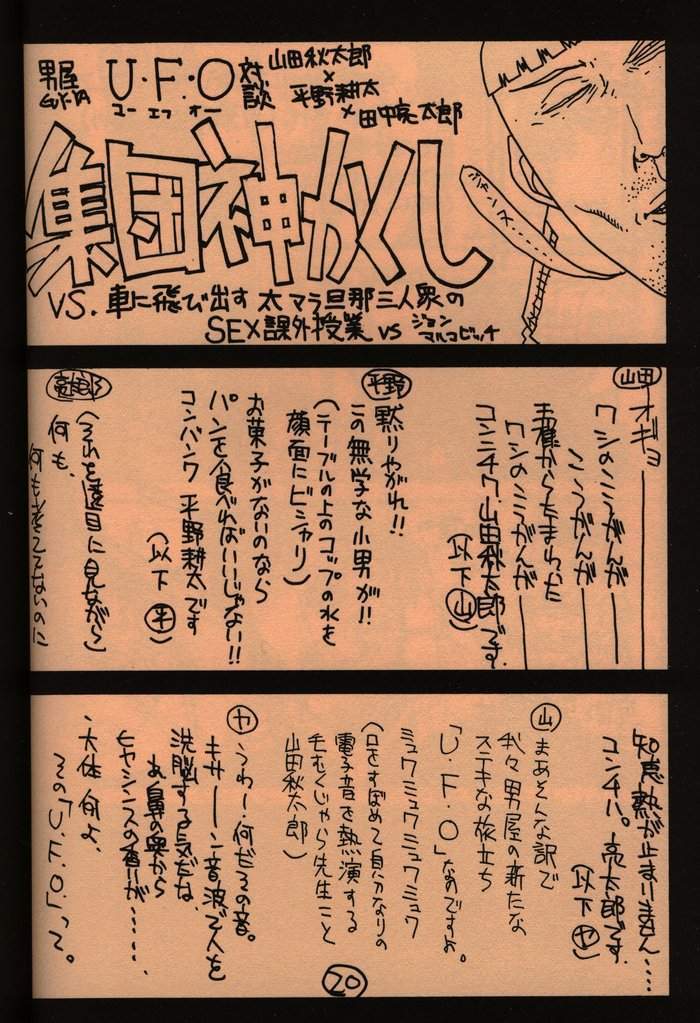 男屋
U・F・O
ユー エフ オー
対談
山田秋太郎
×
平野耕太
×田中亮太郎
集団神かくし
VS.車に飛び出す 太マラ旦那三人衆の
SEX課外授業 VS ジョン
マルコビッチ
山田
オギョ
ワシのこうがんが
こうがんが
ワシのこうがんが
コンニチワ、山田秋太郎です。
(以下 山)
平野
黙りやがれ!!
この無学な小男が!!
(テーブルの上のコップの水を
顔面にビシャリ)
お菓子がないのなら
パンを食べればいいじゃない!!
コンバンワ 平野耕太です
(以下 平)
亮太郎
(それを遠目に見ながら)
何も、
何も考えてないのに
知恵熱が止まりません……
コンチハ。亮太郎です。
(以下 ヤ)
山
まあそんな訳で
我々男屋の新たな
ステキな旅立ち
「U・F・O」なのですよ。
ミュウミュウミュウミュウ
(口をすぼめて自分なりの
電子音を熱演する
毛むくじゃら先生こと
山田秋太郎)
ヤ
うわー、何だその音。
キサーン音波で人を
洗脳する気だな、
お鼻の奥から
ヒヤシンスの香りが……、
、大体何よ、
その「U.F.O」って。
20